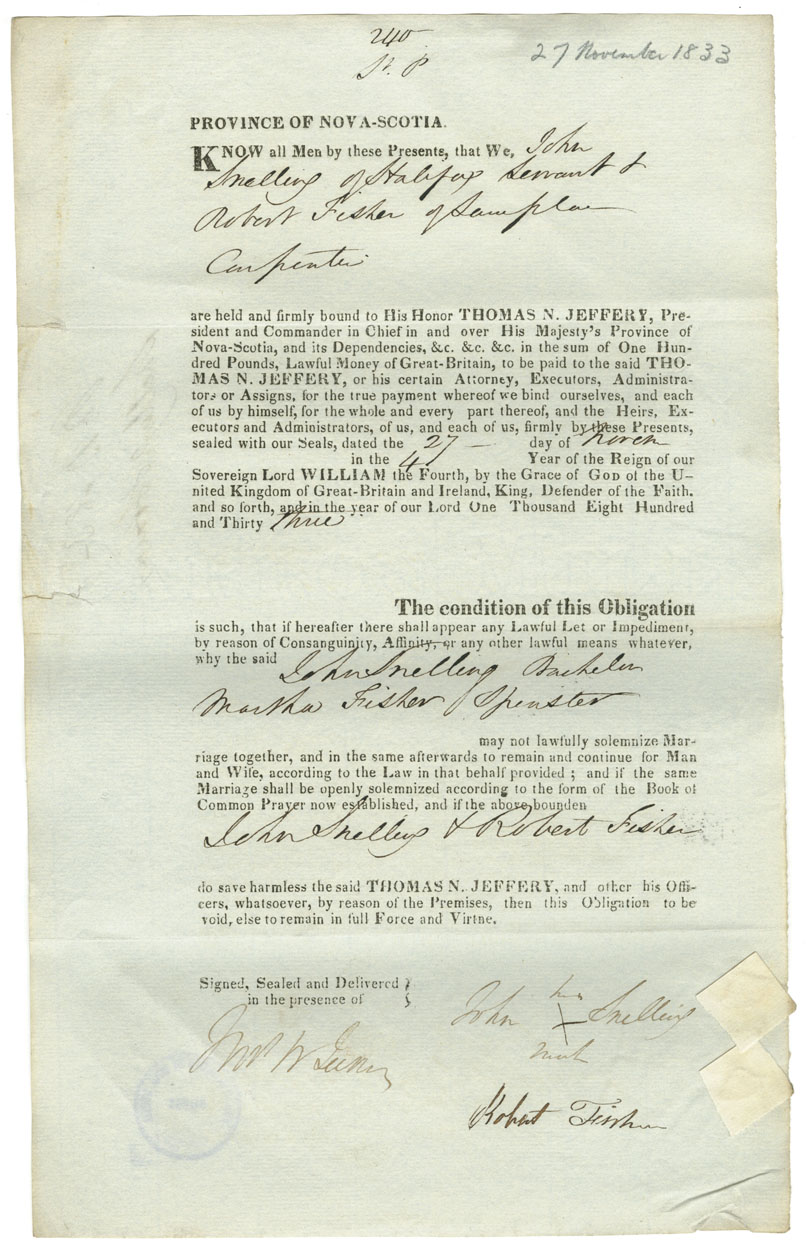 240
St. P
27 November 1833
PROVINCE OF NOVA-SCOTIA.
KNOW all Men by these Presents, that We, John
Snelling of Halifax Servant &
Robert Fisher of same place
Carpenter
are held and firmly bound to His Honor THOMAS N. JEFFERY, Pre-
sident and Commander in Chief in and over His Majesty's Province of
Nova-Scotia, and its Dependencies, &c. &c. &c. in the sum of One Hun-
dred Pounds, Lawful Money of Great-Britain, to be paid to the said THO-
MAS N. JEFFERY, or his certain Attorney, Executors, Administra-
tors or Assigns, for the true payment whereof we bind ourselves, and each
of us by himself, for the whole and every part thereof, and the Heirs, Ex-
ecutors and Administrators, of us, and each of us, firmly by these Presents,
sealed with our Seals, dated the 27 day of Novem
in the 4 Year of the Reign of our
Sovereign Lord WILLIAM the Fourth, by the Grace of GOD of the U-
nited Kingdom of Great-Britain and Ireland, King, Defender of the Faith.
and so forth, and in the year of our Lord One Thousand Eight Hundred
and Thirty three
The condition of this Obligation
is such, that if hereafter there shall appear any Lawful Let or Impediment,
by reason of Consanguinity, Affinity, or any other lawful means whatever,
why the said John Snelling Bachelor
Martha Fisher Spinster
may not lawfully solemnize Mar-
riage together, and in the same afterwards to remain and continue for Man
and Wife, according to the Law in that behalf provided ; and if the same
Marriage shall be openly solemnized according to the form of the Book of
Common Prayer now established, and if the above bounden
John Snelling & Robert Fisher
do save harmless the said THOMAS N. JEFFERY, and other his Offi-
cers, whatsoever, by reason of the Premises, then this Obligation to be
void, else to remain in full Force and Virtne.
Signed, Sealed and Delivered }
in the presence of
his
John X Snelling
mark
Robert Fisher